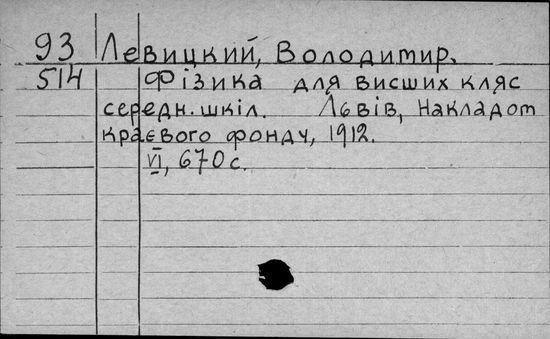 93 Левицкий, Володимир.
514 Фізика для висших кляс
середн. шкіл. Львів, Накладом
краєвого фонду, 1912.
VI, 670 с.